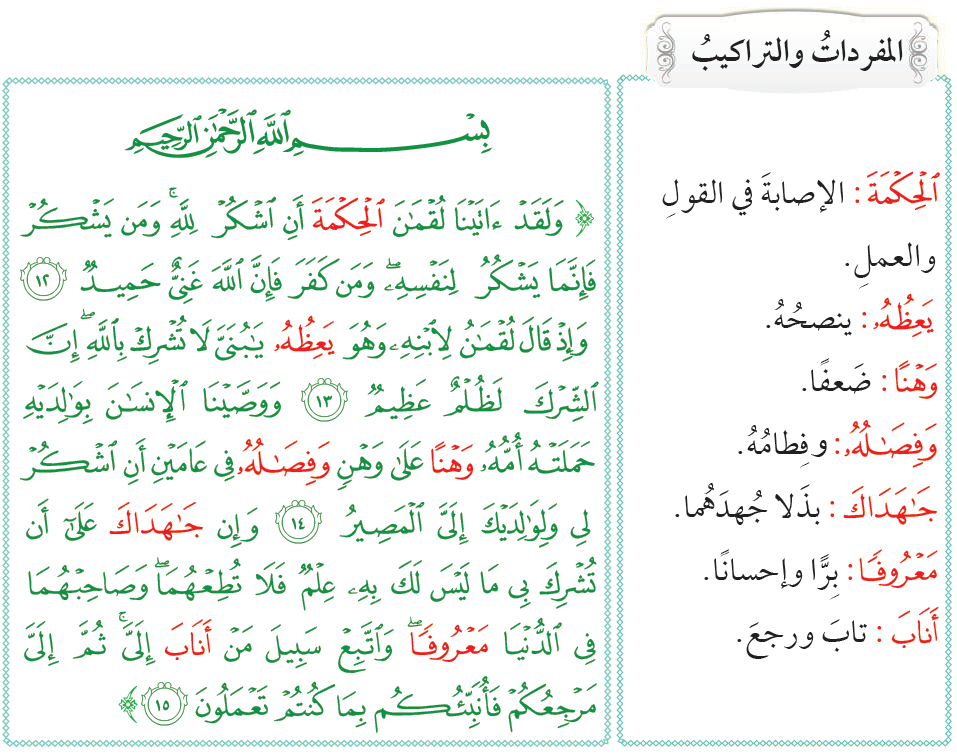 المفرداتُ والتراكيبُ
ٱلْحِكْمَةَ : الإصابةَ في القولِ
والعملِ.
يَعِظُهُۥ : ينصحُهُ.
وَهْنًا : ضَعفًا.
وَفِصَٰلُهُۥ : وفِطامُهُ.
جَٰهَدَاكَ : بذَلا جُهدَهُما.
مَعْرُوفًا : بِرًّا وإحسانًا.
أَنَابَ : تابَ ورجعَ.
بِسْمِ ٱللَّهِ ٱلرَّحْمَٰنِ ٱلرَّحِيمِ
﴿ وَلَقَدْ ءَاتَيْنَا لُقْمَٰنَ ٱلْحِكْمَةَ أَنِ ٱشْكُرْ لِلَّهِ ۚ وَمَن يَشْكُرْ
فَإِنَّمَا يَشْكُرُ لِنَفْسِهِۦ ۖ وَمَن كَفَرَ فَإِنَّ ٱللَّهَ غَنِىٌّ حَمِيدٌ ١٢
وَإِذْ قَالَ لُقْمَٰنُ لِٱبْنِهِۦ وَهُوَ يَعِظُهُۥ يَٰبُنَىَّ لَا تُشْرِكْ بِٱللَّهِ ۖ إِنَّ
ٱلشِّرْكَ لَظُلْمٌ عَظِيمٌ ١٣ وَوَصَّيْنَا ٱلْإِنسَٰنَ بِوَٰلِدَيْهِ
حَمَلَتْهُ أُمُّهُۥ وَهْنًا عَلَىٰ وَهْنٍ وَفِصَٰلُهُۥ فِى عَامَيْنِ أَنِ ٱشْكُرْ
لِى وَلِوَٰلِدَيْكَ إِلَىَّ ٱلْمَصِيرُ ١٤ وَإِن جَٰهَدَاكَ عَلَىٰٓ أَن
تُشْرِكَ بِى مَا لَيْسَ لَكَ بِهِۦ عِلْمٌ فَلَا تُطِعْهُمَا ۖ وَصَاحِبْهُمَا
فِى ٱلدُّنْيَا مَعْرُوفًا ۖ وَٱتَّبِعْ سَبِيلَ مَنْ أَنَابَ إِلَىَّ ۚ ثُمَّ إِلَىَّ
مَرْجِعُكُمْ فَأُنَبِّئُكُم بِمَا كُنتُمْ تَعْمَلُونَ ١٥ ﴾